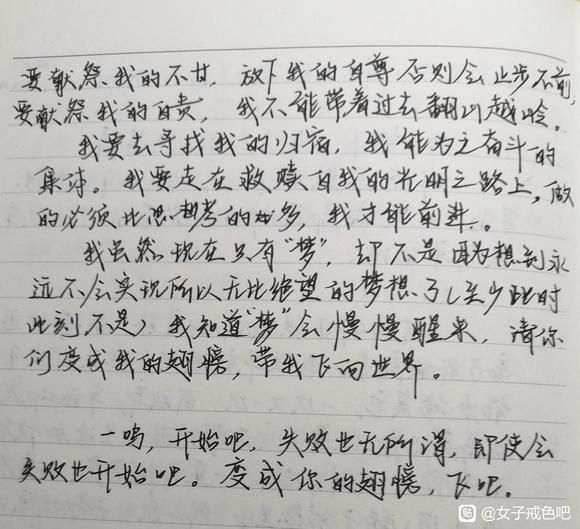 要献祭我的不甘，放下我的自尊否则会止步不前，
要献祭我的自责，我不能带着过去翻山越岭。
我要去寻找我的归宿，我能为之奋斗的
集体。我要走在救赎自我的光明之路上，做
的必须比思考的多，我才能前进。
我虽然现在只有“梦”，却不是因为想到永
远不会实现所以无比绝望的梦想了（至少此时
此刻不是），我知道“梦”会慢慢醒来，请你
们变成我的翅膀，带我飞向世界。
一鸣，开始吧，失败也无所谓，即使会
失败也开始吧。变成你的翅膀，飞吧。
贴 @女子戒色吧